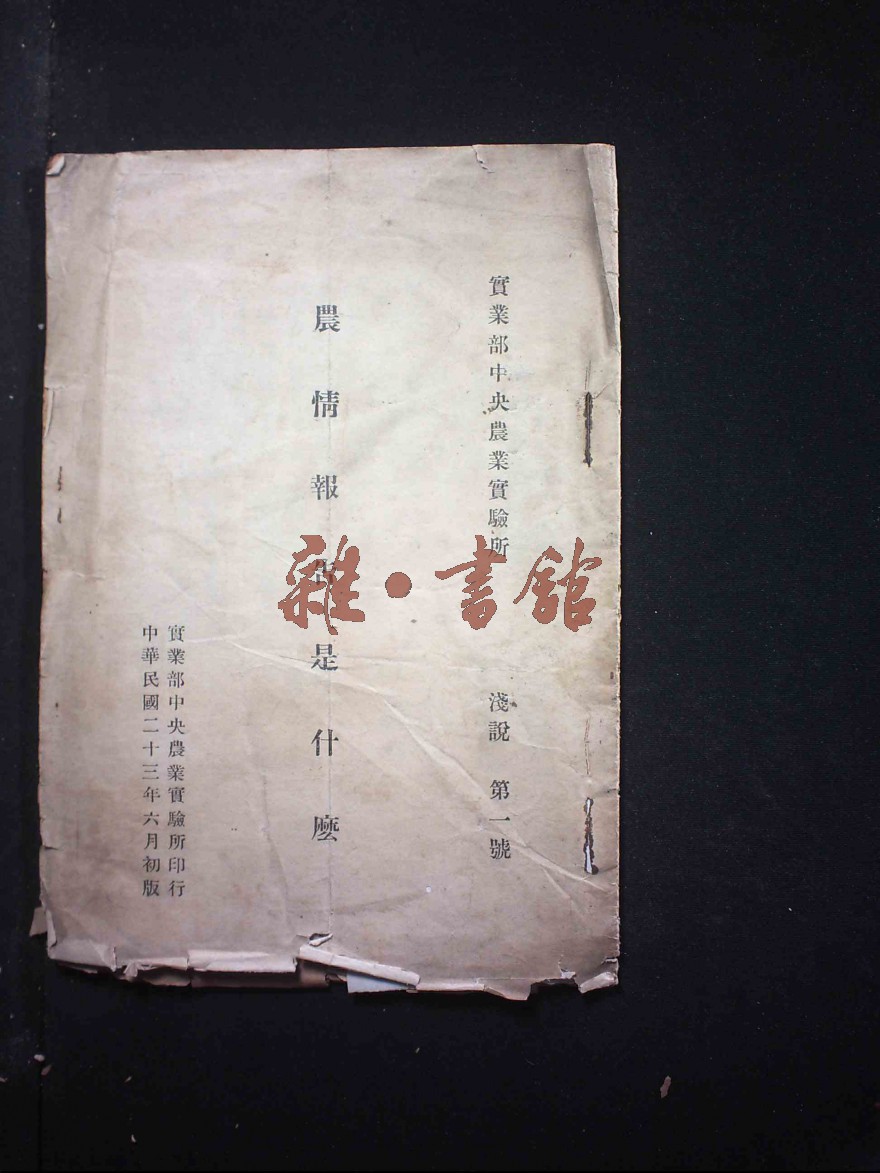 實業部中央農業實驗所 淺說 第一號
農情報告是什麼
實業部中央農業實驗所印行
中華民國二十三年六月初版
雜·書館